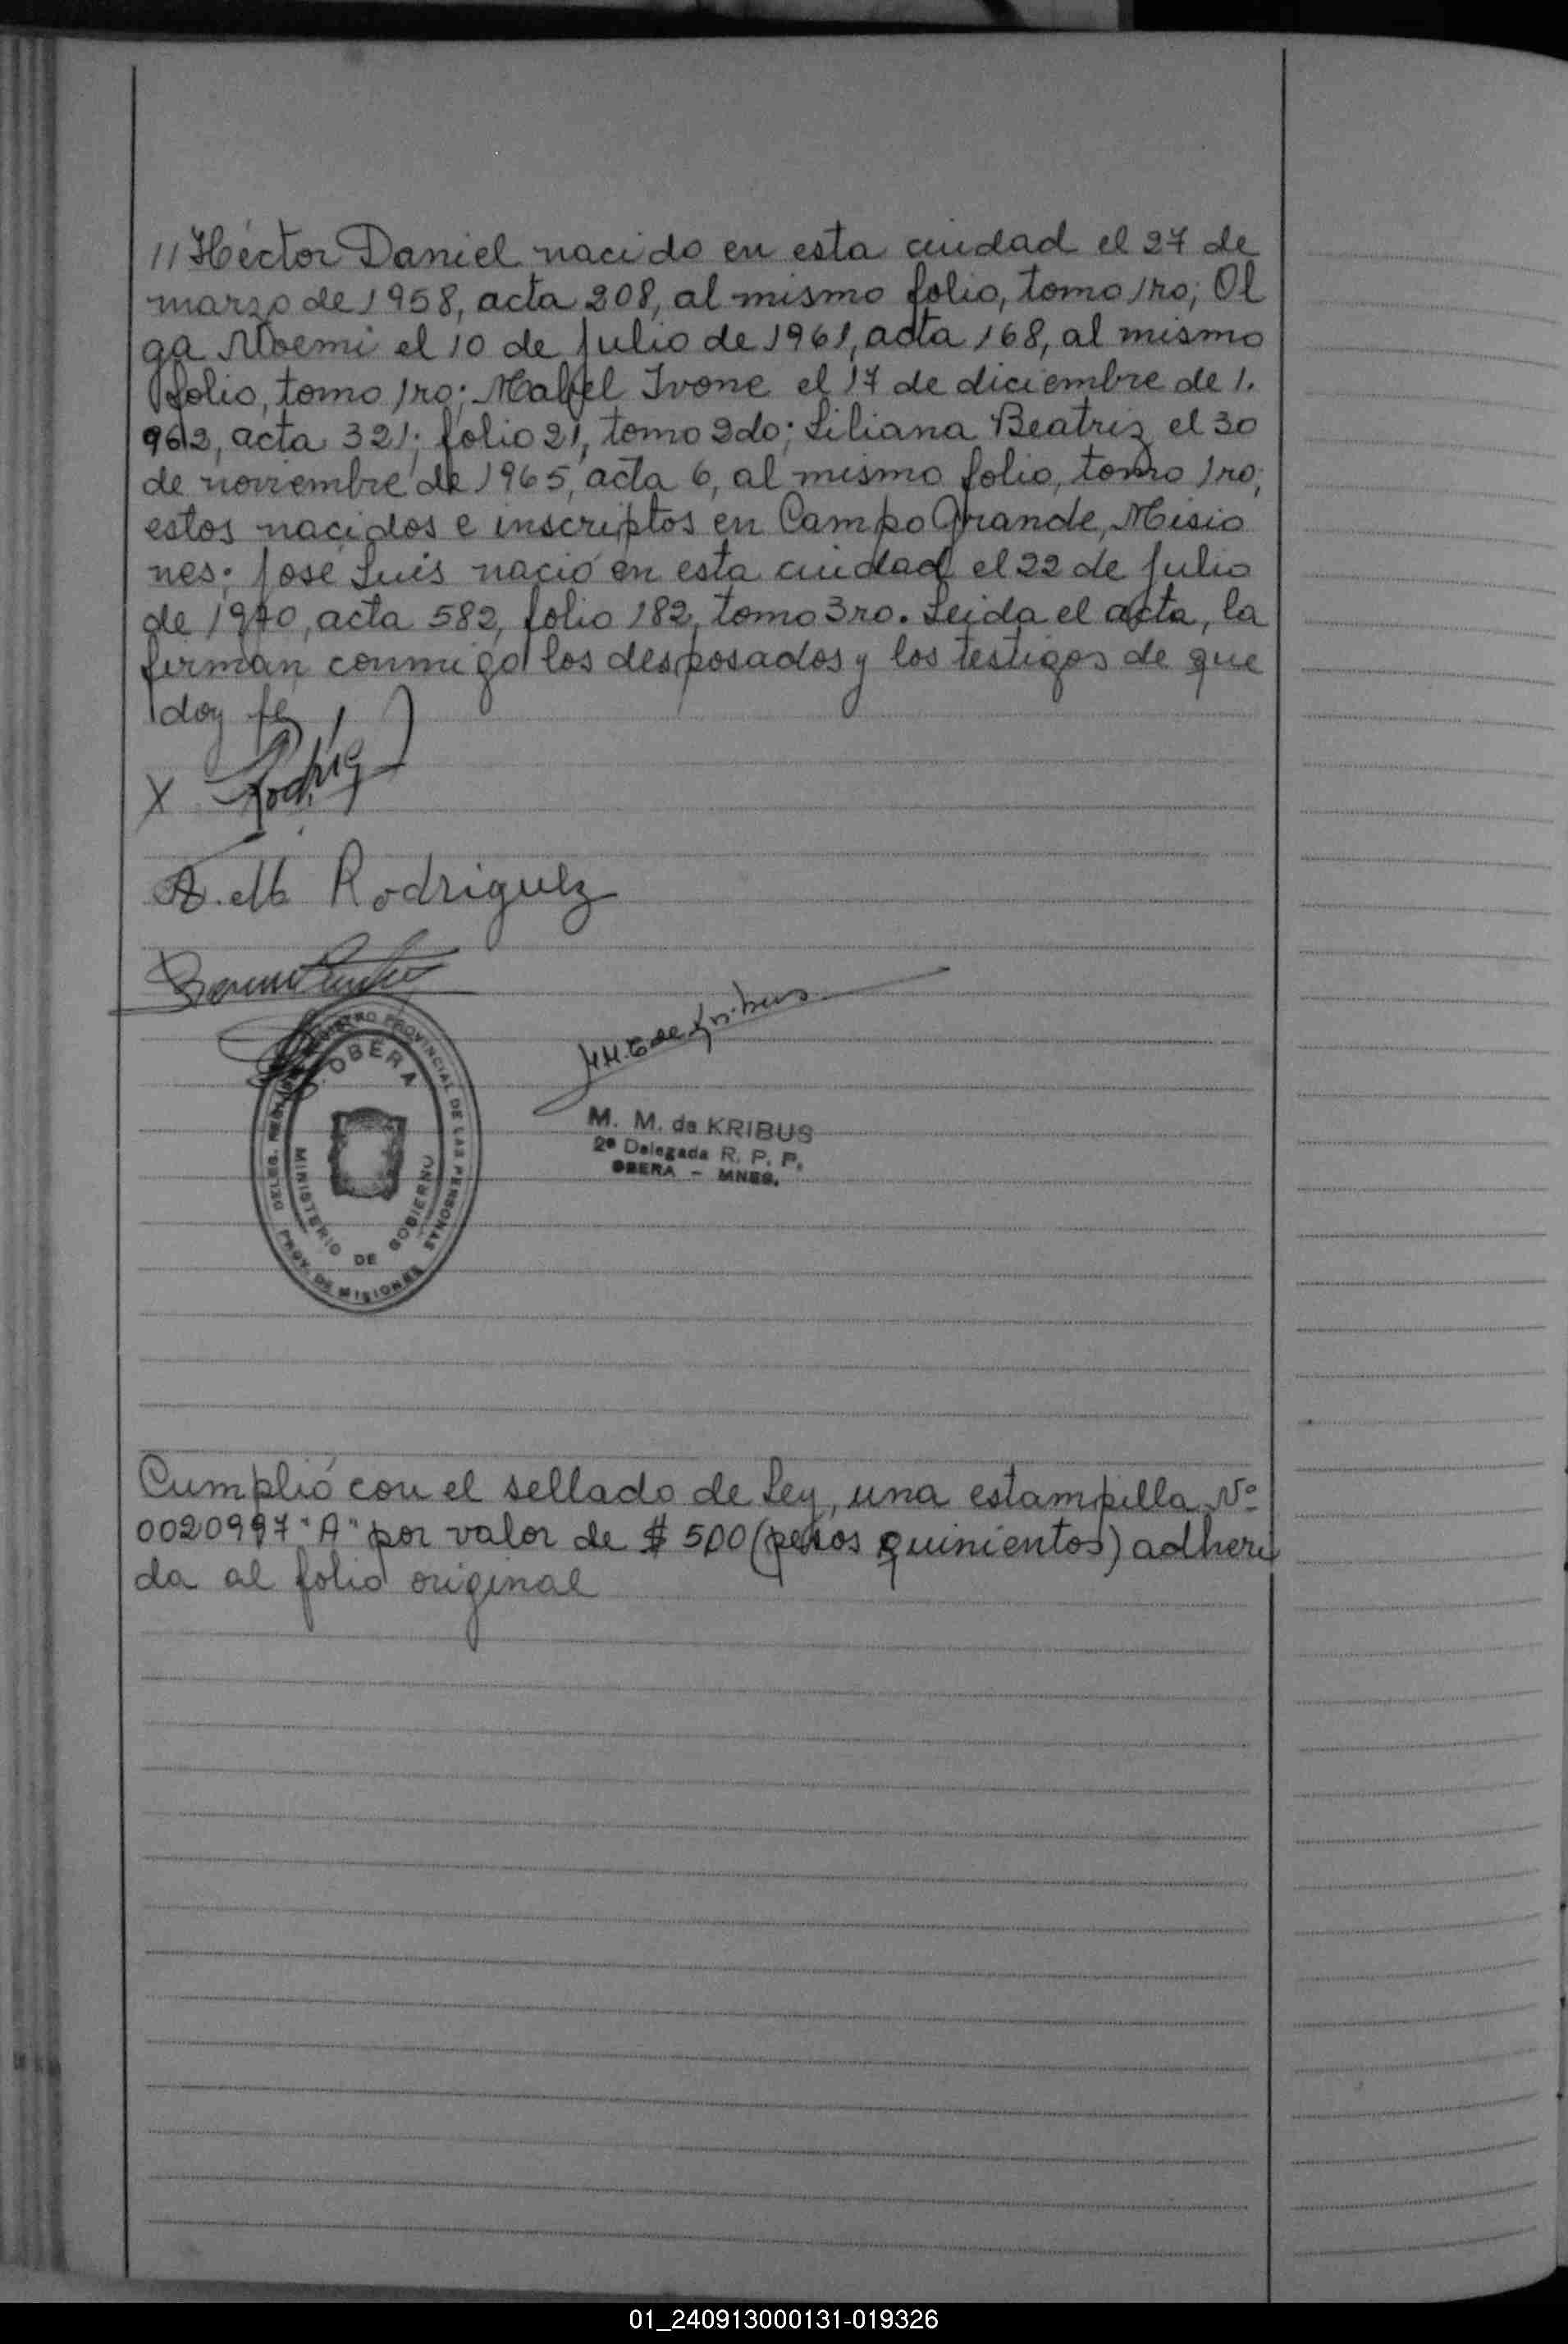 // Héctor Daniel nacido en esta ciudad el 27 de
marzo de 1958, acta 208, al mismo folio, tomo 1ro; Ol
ga Noemi el 10 de julio de 1961, acta 168, al mismo
folio, tomo 1ro; Mabel Ivone el 17 de diciembre de 1.
962, acta 321; folio 21, tomo 2do; Liliana Beatriz el 30
de noviembre de 1965, acta 6, al mismo folio, tomo 1ro;
estos nacidos e inscriptos en Campo Grande, Misio
nes; José Luis nació en esta ciudad el 22 de julio
de 1970, acta 582, folio 182, tomo 3ro. Leida el acta, la
firman conmigo los desposados y los testigos de que
doy fe
X
Rodriguez
DELEG. REGISTRO PROVINCIAL DE LAS PERSONAS
OBERA
MINISTERIO DE GOBIERNO
PROV. DE MISIONES
de Kribus
M. M. de KRIBUS
2ª Delegada R. P. P.
OBERA - MNES.
Cumplió con el sellado de Ley, una estampilla Nº
0020997 "A" por valor de $ 500 (pesos quinientos) adheri
da al folio original
01_240913000131-019326